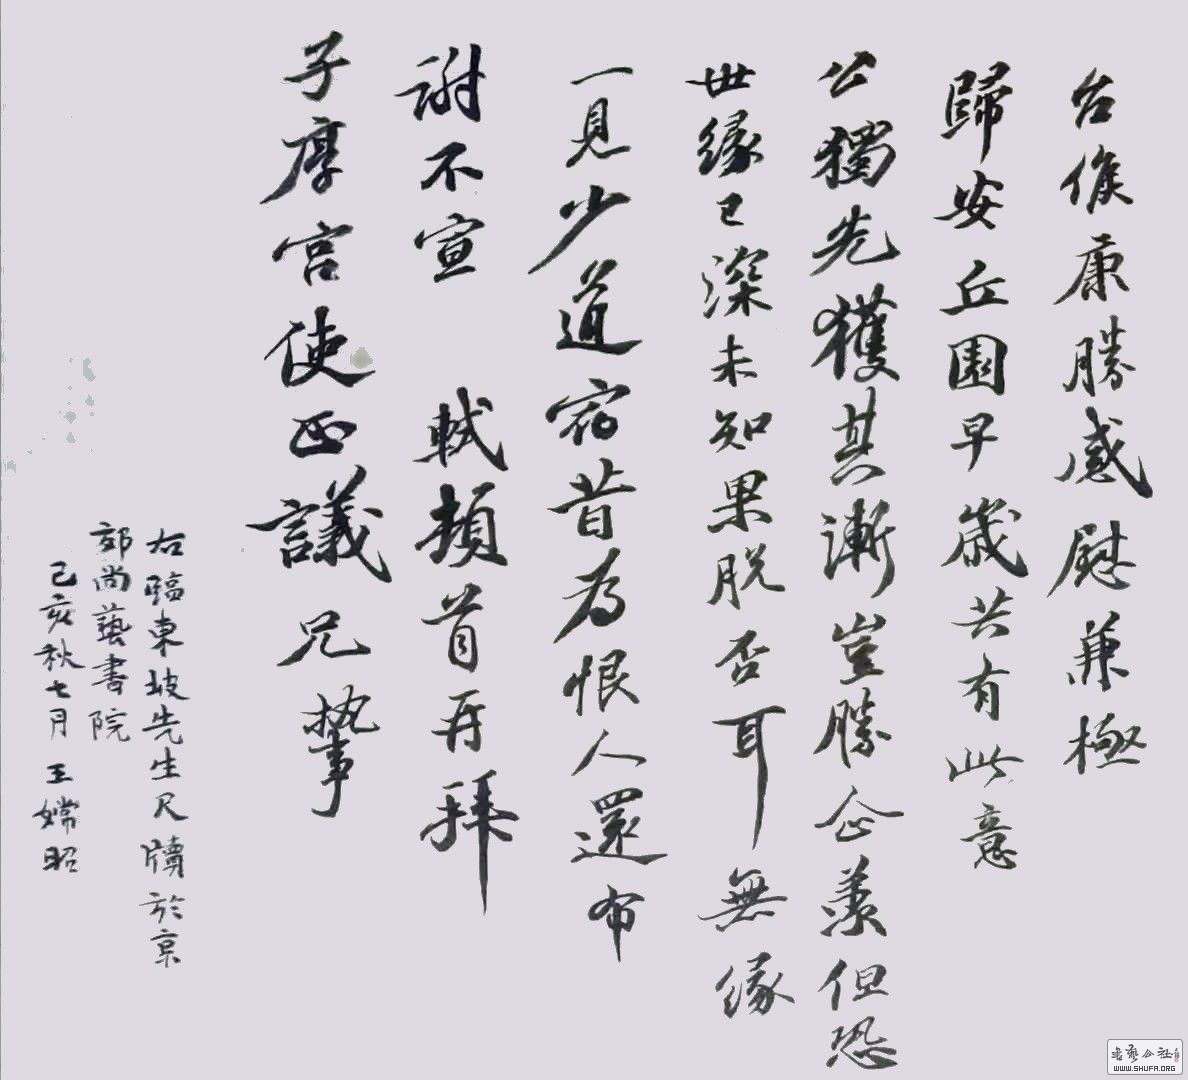 台候康勝感慰兼極
歸安丘園早歲共有此意
公獨先獲其漸豈勝企羨但恐
世緣已深未知果脫否耳無緣
一見少道宿昔為恨人還布
謝不宣 軾頓首再拜
子厚宮使正議兄執事
右臨東坡先生尺牘於京
郊尚藝書院
己亥秋七月 王嫦昭
書藝公社
WWW.SHUFA.ORG